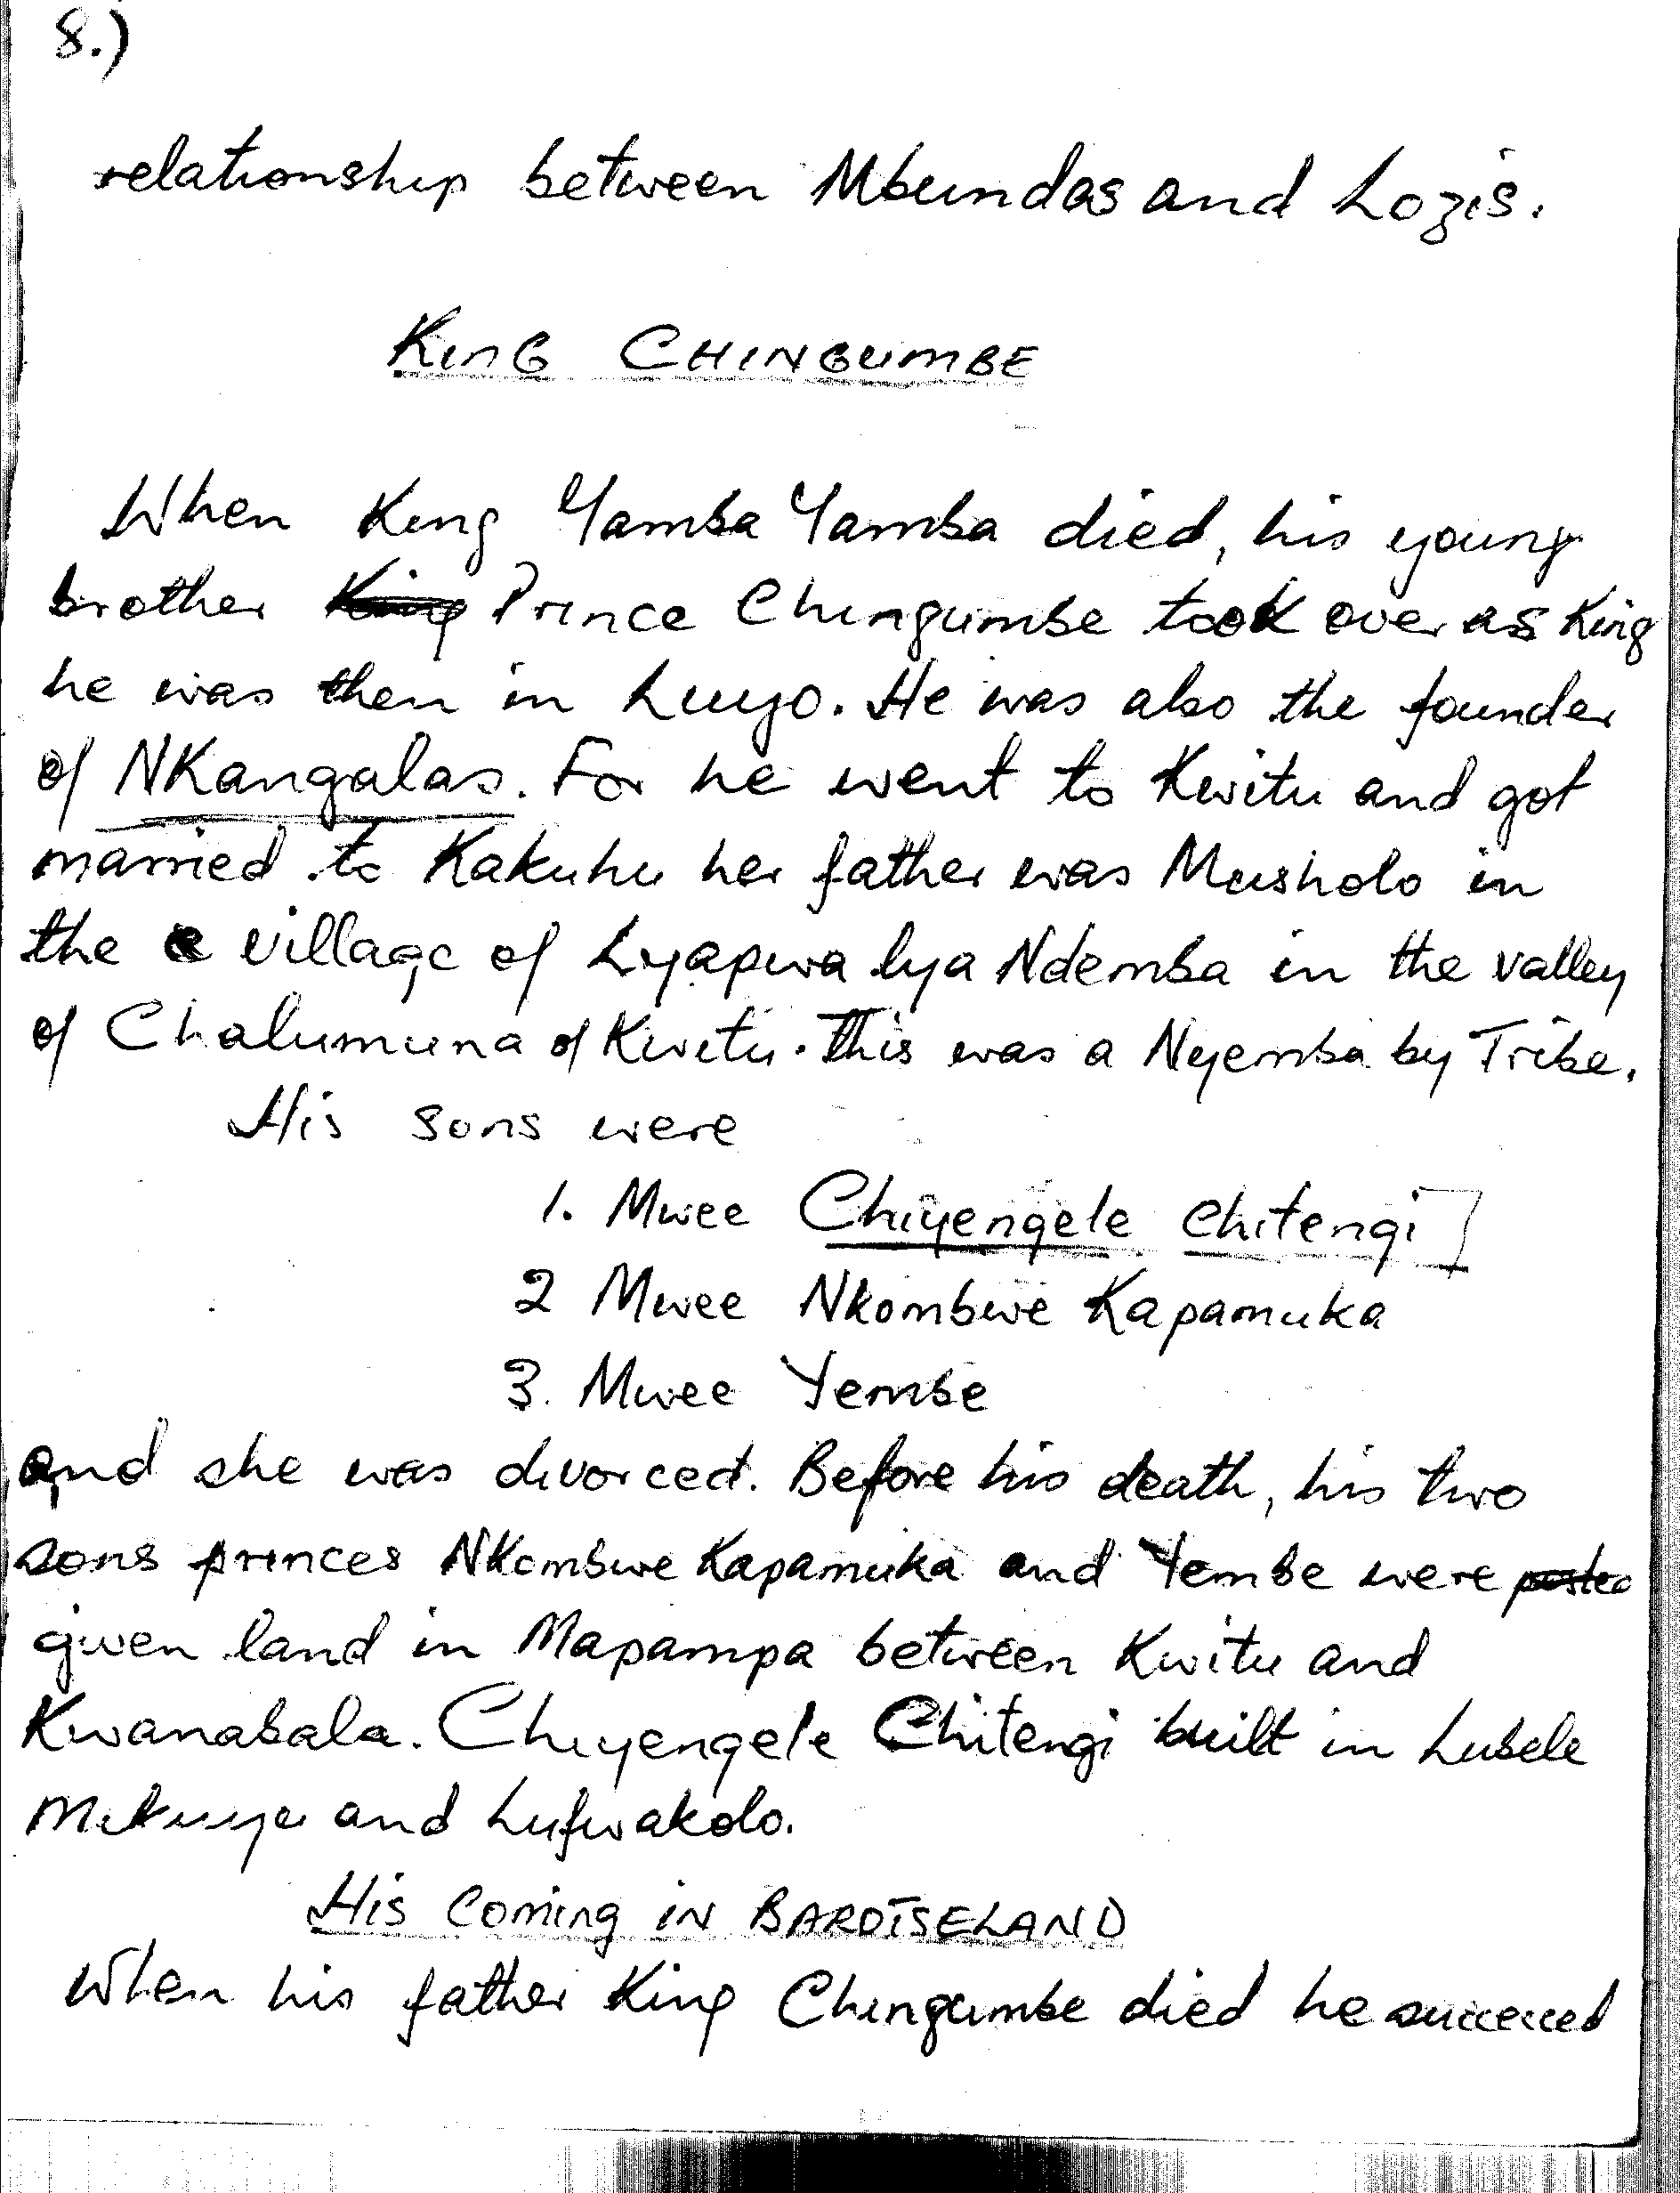 8.)
relationship between Mbundas and Lozis.
KinG CHINGUMBE
When King Yamba Yamba died, his young
brother King Prince Chingumbe took over as King
he was then in Luyo. He was also the founder
of NKangalas. For he went to Kwitu and got
married to Kakuhu her father was Musholo in
the village of Lyapwa lya Ndemba in the valley
of Chalumuna of Kwitu. This was a Nyemba by Tribe.
His sons were
1. Mwee Chiyengele Chitengi]
2 Mwee Nkombwe Kapamuka
3. Mwee Yembe
and she was divorced. Before his death, his two
sons princes NKombwe Kapamuka and Yembe were posted
given land in Mapampa between Kwitu and
Kwanabala. Chiyengele Chitengi built in Lubele
and Lufwakolo.
His Coming iN BAROTSELAND
When his father King Chingumbe died he